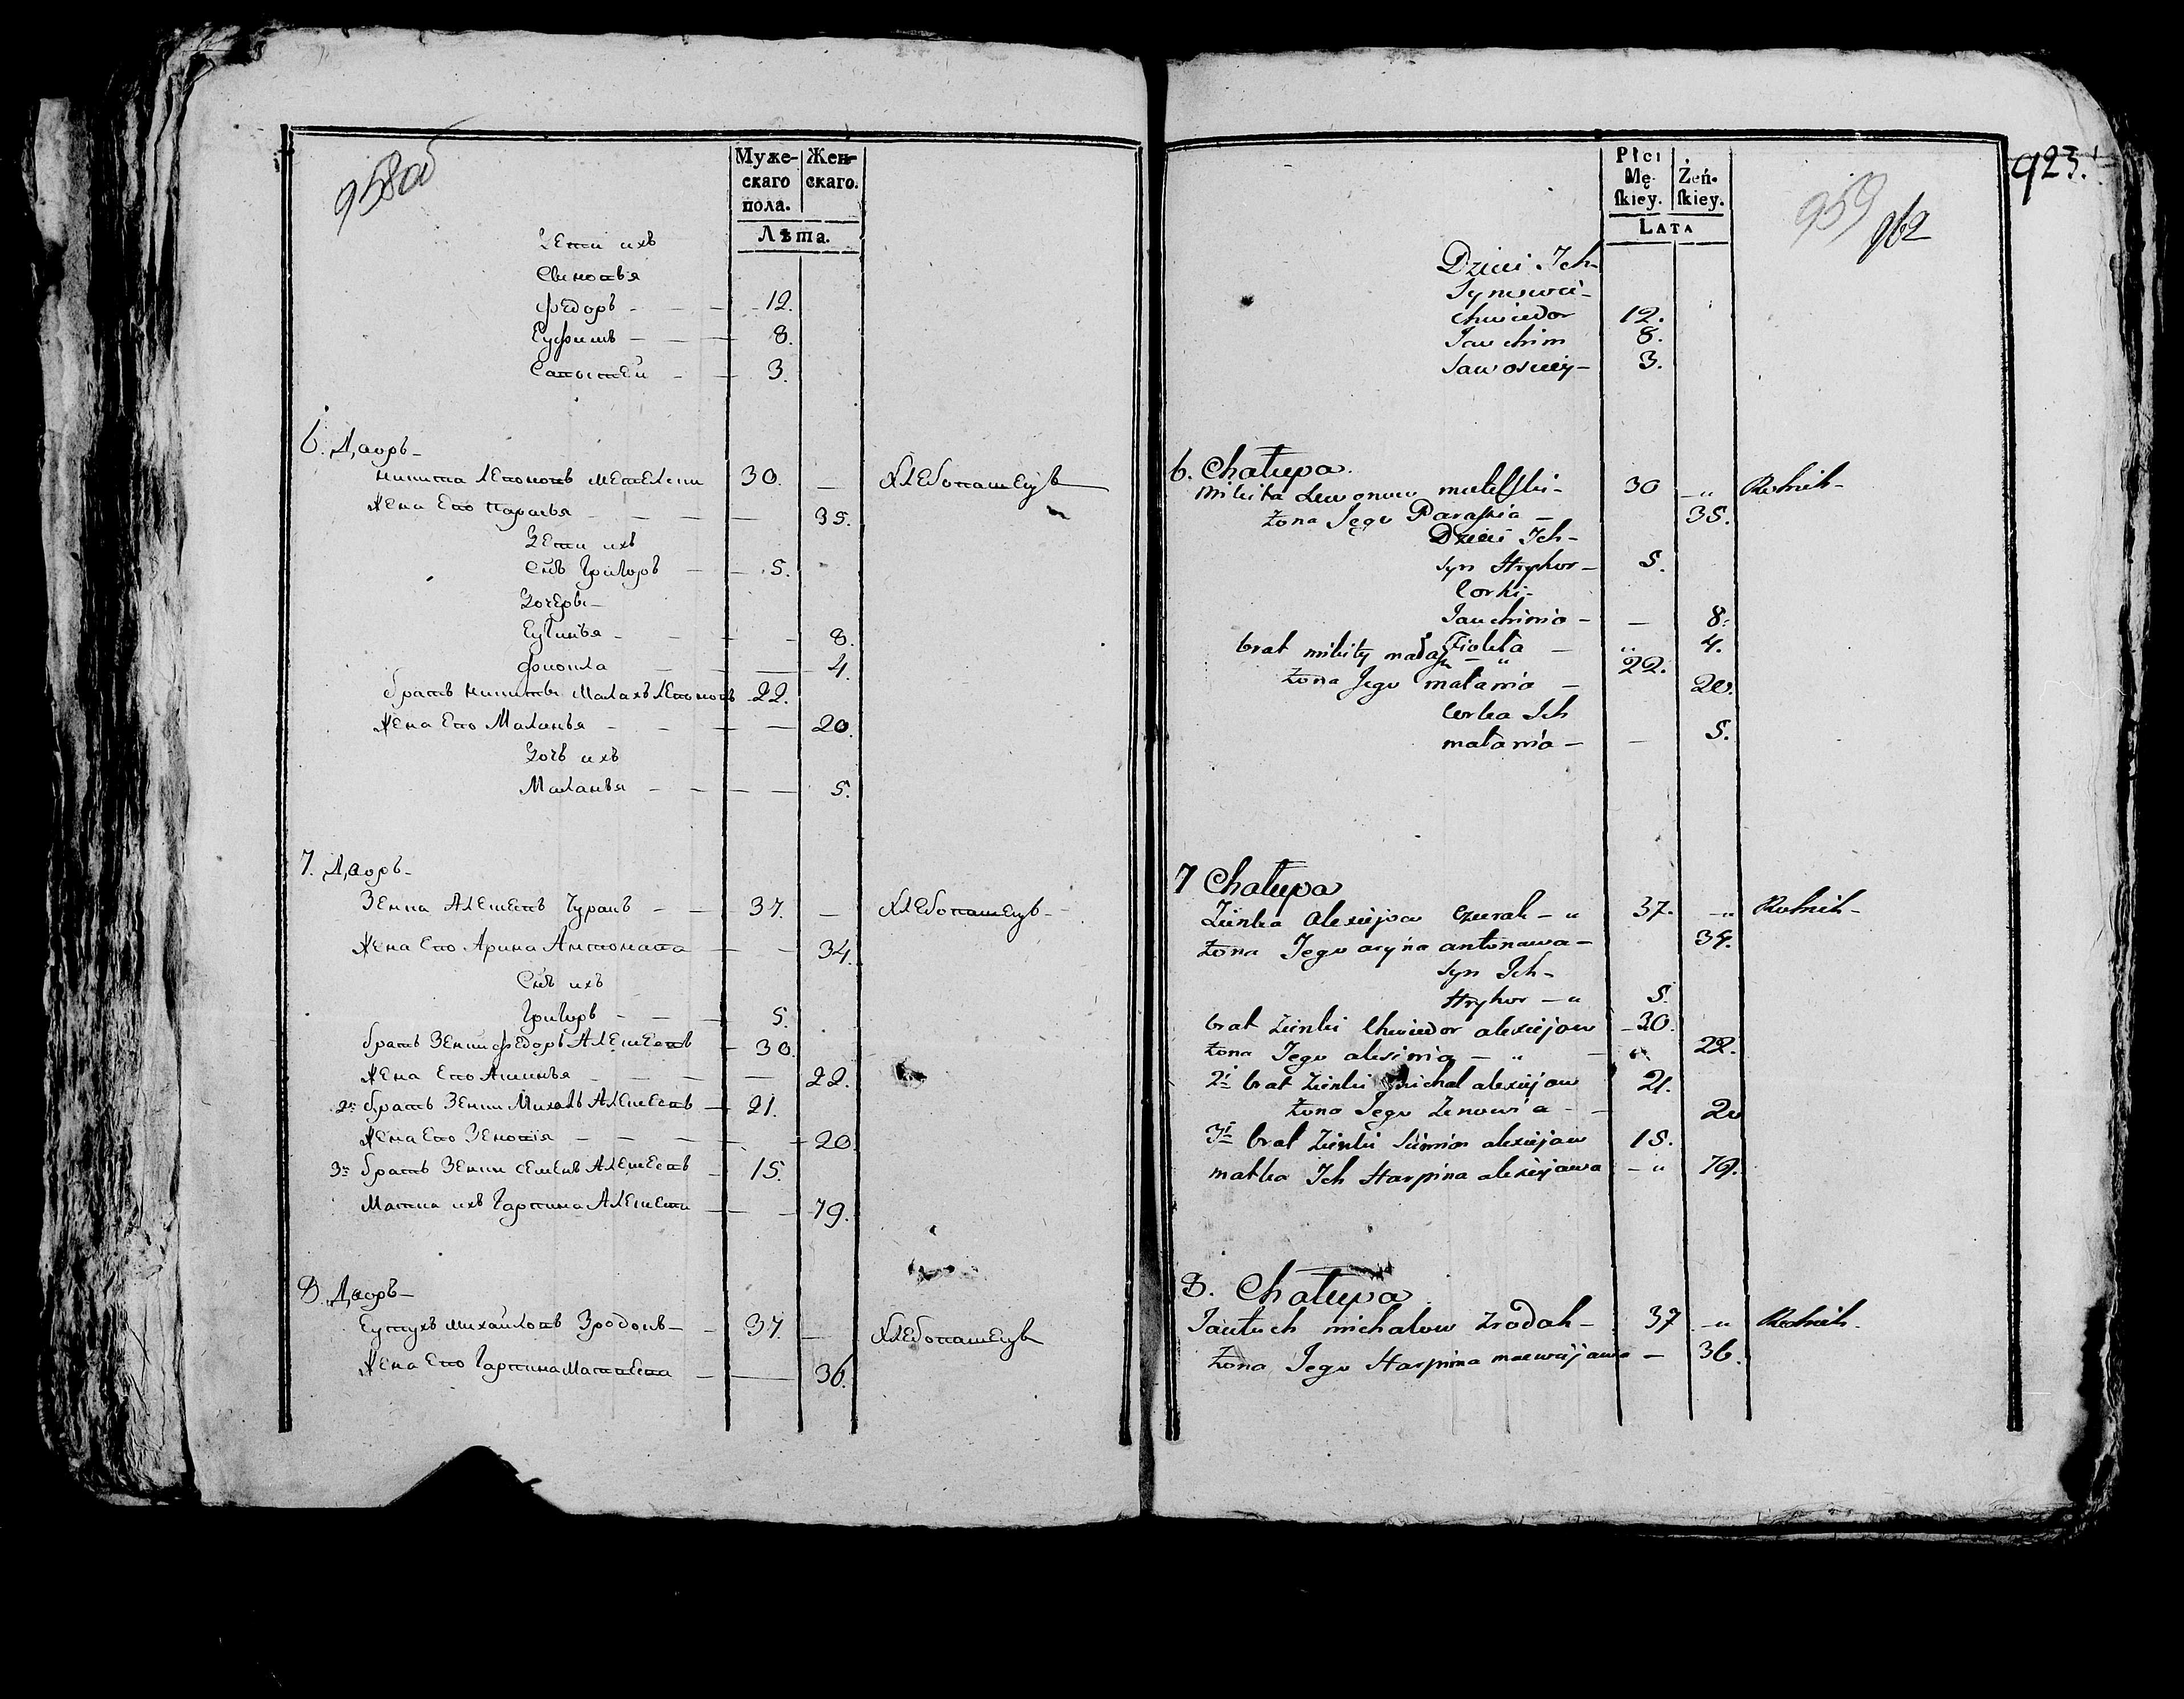 958об
Муже-
скаго
пола.
Жен-
скаго.
Лѣта.
Дети ихъ
Синовья
Федоръ - - - 12.
Еуфимъ - - - 8.
Савостей - - 3.
6. Дворъ-
Никита Левоновъ 30. — Хлебопашецъ
Жена Ево Парасья - - - - 35.
Дети ихъ
Снъ Григоръ - - 5.
Дочери-
Еугинья - - - - 8.
Фиокла - - - 4.
братъ Никиты Малахъ Левоновъ 22.
Жена Ево Маланья - - - - 20.
Дочь ихъ
Маланья - - - - 5.
7. Дворъ-
Зенка Алексеевъ Чуракъ - - 37. — Хлебопашецъ-
Жена Ево Арина Антонова - - 34.
Снъ ихъ
Григоръ - - - 5.
братъ Зенки Федоръ Алексеевъ - 30.
Жена Ево Аксинья - - - - 22.
2й братъ Зенки Михалъ Алексеевъ - 21.
Жена Ево Зеновія - - - - 20.
3й братъ Зенки Семенъ Алексеевъ - 15.
Матка ихъ Гарпина Алексеева - - 79.
8. Дворъ-
Еутухъ Михайловъ Зродокъ - - 37. — Хлебопашецъ
Жена Ево Гарпина - — 36.
923.
Płci
Mę-
skiey.
Żeń-
skiey.
Lata
959
962
Dzieci Ich-
Synowie-
Chwiedor 12.
Jauchim 8.
Sawosciey- 3.
6. Chałupa.
Mikita Lewonow 30 -" Rolnik-
Żona Jego Paraskia - 35.
Dzieci Ich-
Syn Hryhor- 5.
Corki-
Jauchimia - — 8.
Fiokła - " 4.
brat mikity małach - " 22.
Żona Jego małania - 20.
Corka Ich
małania - — 5.
7 Chałupa
Zienka Alexiejow Czurak - " 37. -" Rolnik-
Żona Jego aryna antonawa- 34.
Syn Ich-
Hryhor - " 5.
brat Zienki Chwiedor alexiejow -30.
Żona Jego alesinia - " - " 22.
2i brat Zienki michal alexiejow 21.
Żona Jego Zenowia - - 20
3i brat Zienki Siemion alexiejow 15.
matka Ich Harpina alexiejawa - " 79.
8. Chałupa
Jautuch michałow Zrodok - 37 -" Rolnik.
Żona Jego Harpina - 36.